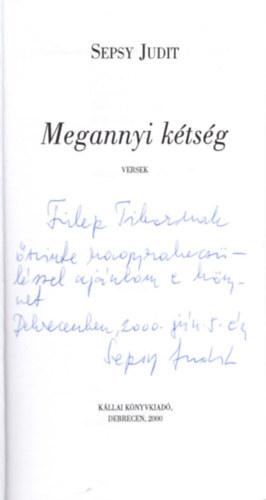 SEPSY JUDIT
Megannyi kétség
VERSEK
Fülep Tibornak
őszinte nagyrabecsü-
léssel ajánlom e köny-
vet
Debrecenben, 2000. jún. 5-én
Sepsy Judit
KÁLLAI KÖNYVKIADÓ,
DEBRECEN, 2000